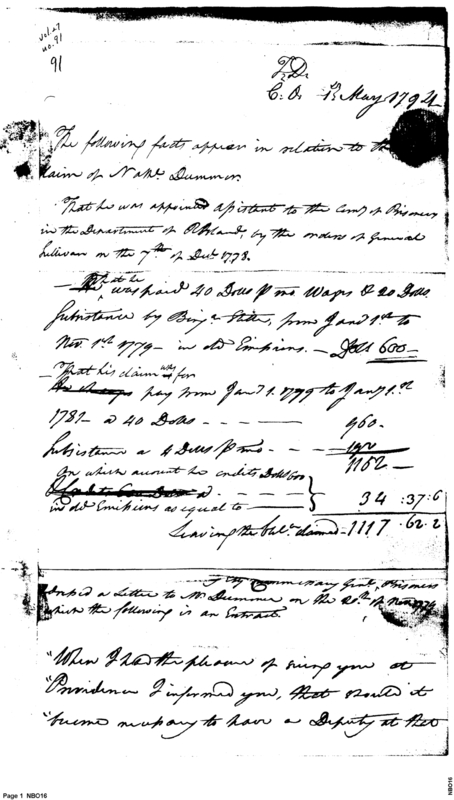 vol. 27
no. 91
91
T.D.
C.O. 13 May 1794
The following facts appear in relation to the
Claim of Nath.l Dummer.
That he was appointed Assistant to the Comy of Prisoners
in the Department of RIsland, by the orders of General
Sullivan on the 7th of Decr 1778.
That he
was paid 40 Dolls P mo Wages & 20 Dolls
Subsistance by Benja Stelle, from Jany 1st to
Novr 1st 1779 - in old Emissions. - Dolls 600 -
That his claim was for
pay from Jany 1. 1779 to Jany 1st
1781 - a 40 Dolls - - - - 960.
Subsistance a 4 Dolls P mo - - 192
1152 -
On which account he credits Dolls 600
in old Emissions as equal to 34 :37:6
Leaving the Bale. claimed - 1117 .62.2
Commissary Genl. Prisoners
a Letter to Mr Dummer on the 20th of Novr
which the following is an Extract.
"When I had the pleasure of seeing you at
"Providence I informed you, that should it
"become necessary to have a Deputy at that
Page 1 NBO16
NBO16